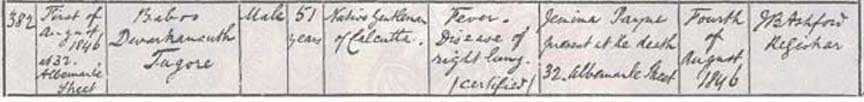 382
First of
August
1846
at 32.
Albemarle
Street
Baboo
Dwarkanauth
Tagore
Male
51
years
Native Gentleman
of Calcutta.
Fever.
Disease of
right lung.
(certified)
Jemima Payne
present at the death
32. Albemarle Street
Fourth
of
August
1846
JB Ashford
Registrar